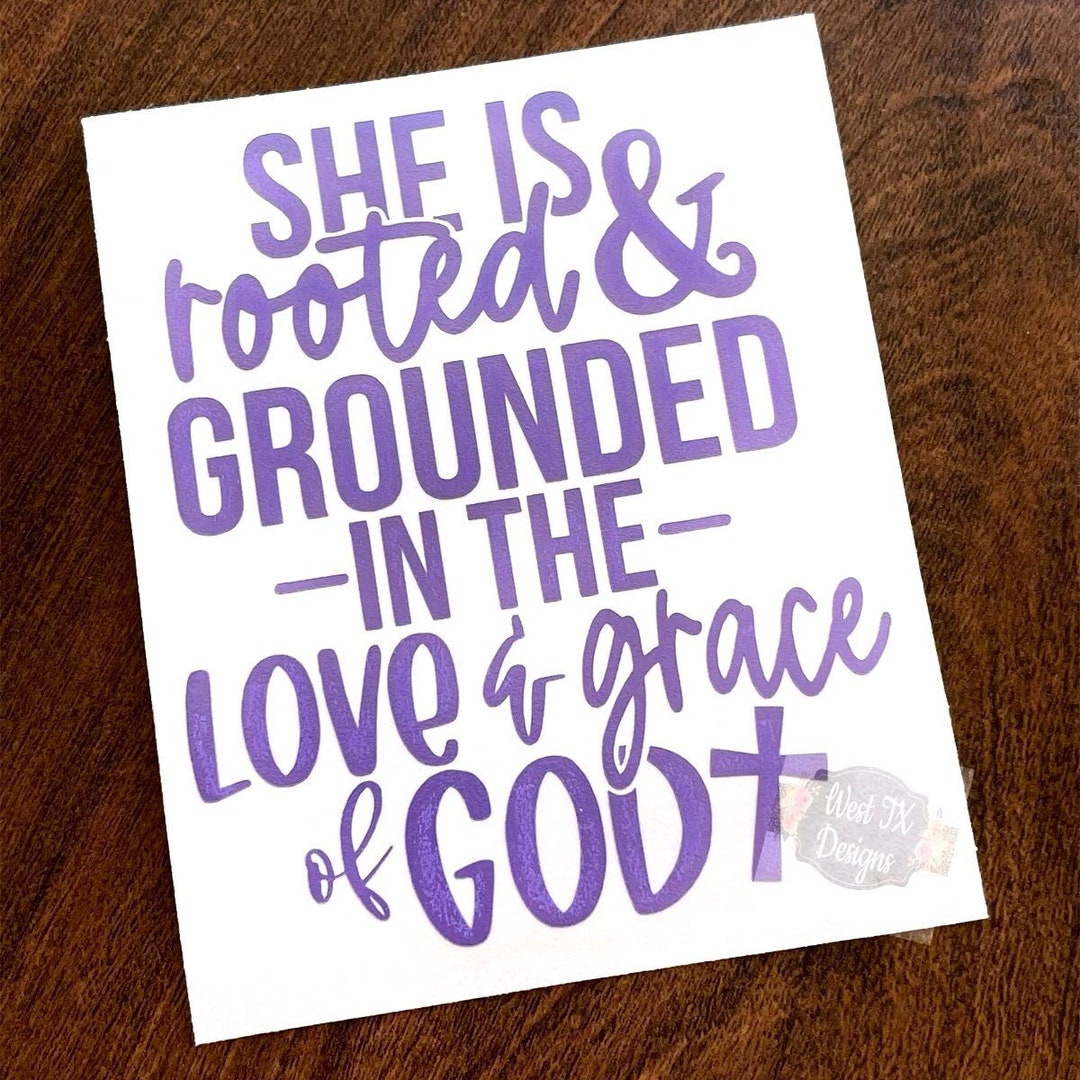 SHE IS
rooted &
GROUNDED
IN THE
LOVE & grace
of GOD
West TX
Designs